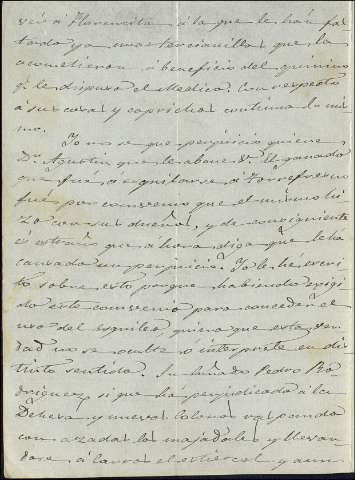 ver á Florencita á la que le han fal-
tado ya unas tercianillas que la
acometieron á beneficio del quinino
q. le dispuso el Medico. Con respecto
á su cara y caprichos continua lo mis
mo.
Yo no se que perjuicio quiere
Dn. Agustin que le abone V. El ganado
que fué á esquilarse á Torrefresno
fue por convenio que el mismo hi
zo con sus dueños, y de consiguiente
es estraño que ahora diga que le há
causado un perjuicio. Yo le hé escri
to sobre esto porque habiendo exigi
do este convenio para conceder el
uso del Esquileo, quiero que esta ver
dad no se oculte ó interprete en dis
tinto sentido. Su criado Pedro Ro
driguez si que há perjudicado á la
Dehesa y nueva Colona rapando
con azada los majadales y llevan
dose á carros el estiercol y aun